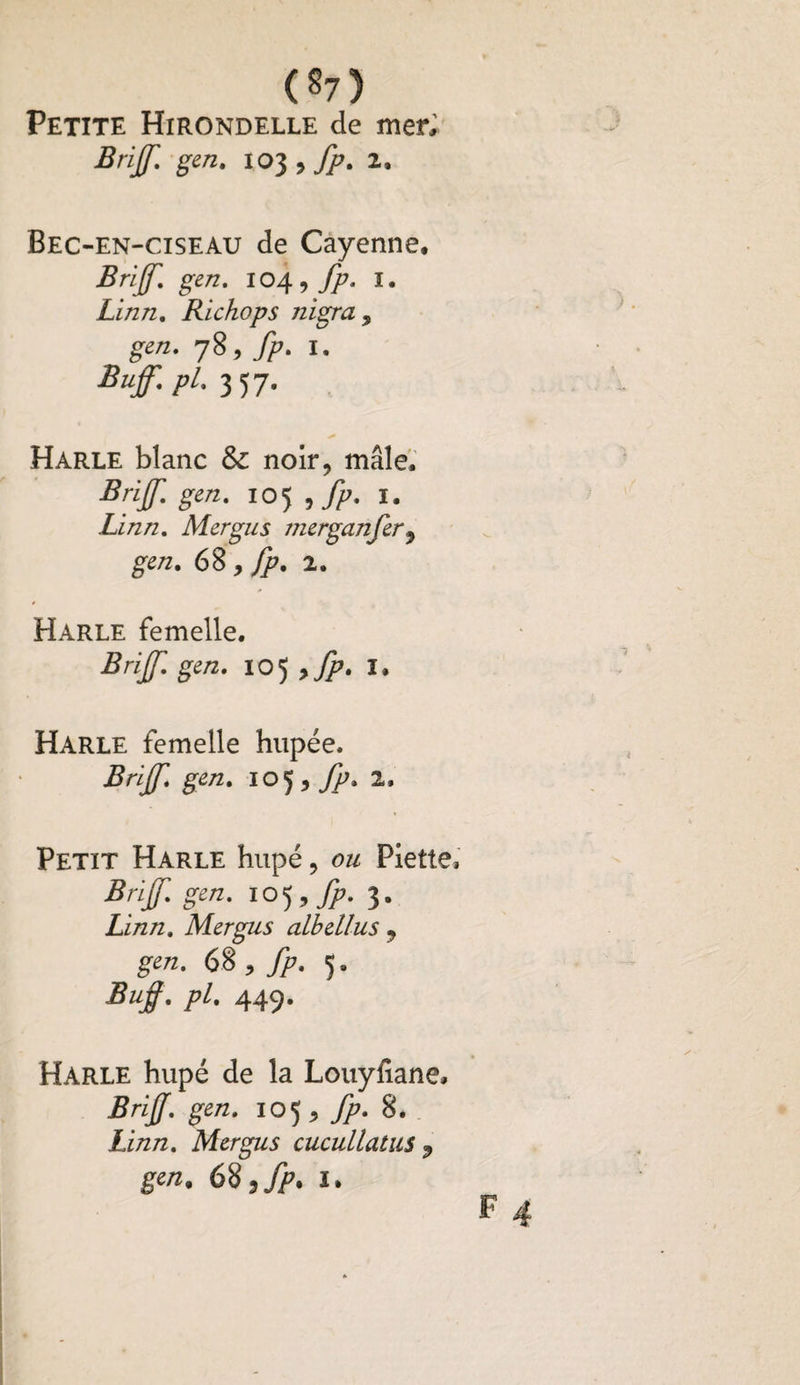 (87)
PETITE HIRONDELLE de mer.
Briſſ. gen. 103, ſp. 2.
BEC-EN-CISEAU de Cayenne.
Briſſ. gen. 104, ſp. 1.
Linn. Richops nigra,
gen. 78, ſp. 1.
Buff. pl. 357.
HARLE blanc & noir, mâle.
Briſſ. gen. 105, ſp. 1.
Linn. Mergus merganſer,
gen. 68, ſp. 2.
HARLE femelle.
Briſſ. gen. 105, ſp. 1.
HARLE femelle hupée.
Briſſ. gen. 105, ſp. 2.
PETIT HARLE hupé, ou Piette.
Briſſ. gen. 105, ſp. 3.
Linn. Mergus albellus,
gen. 68, ſp. 5.
Buff. pl. 449.
HARLE hupé de la Louyſiane.
Briſſ. gen. 105, ſp. 8.
Linn. Mergus cucullatus,
gen. 68, ſp. 1.
F 4